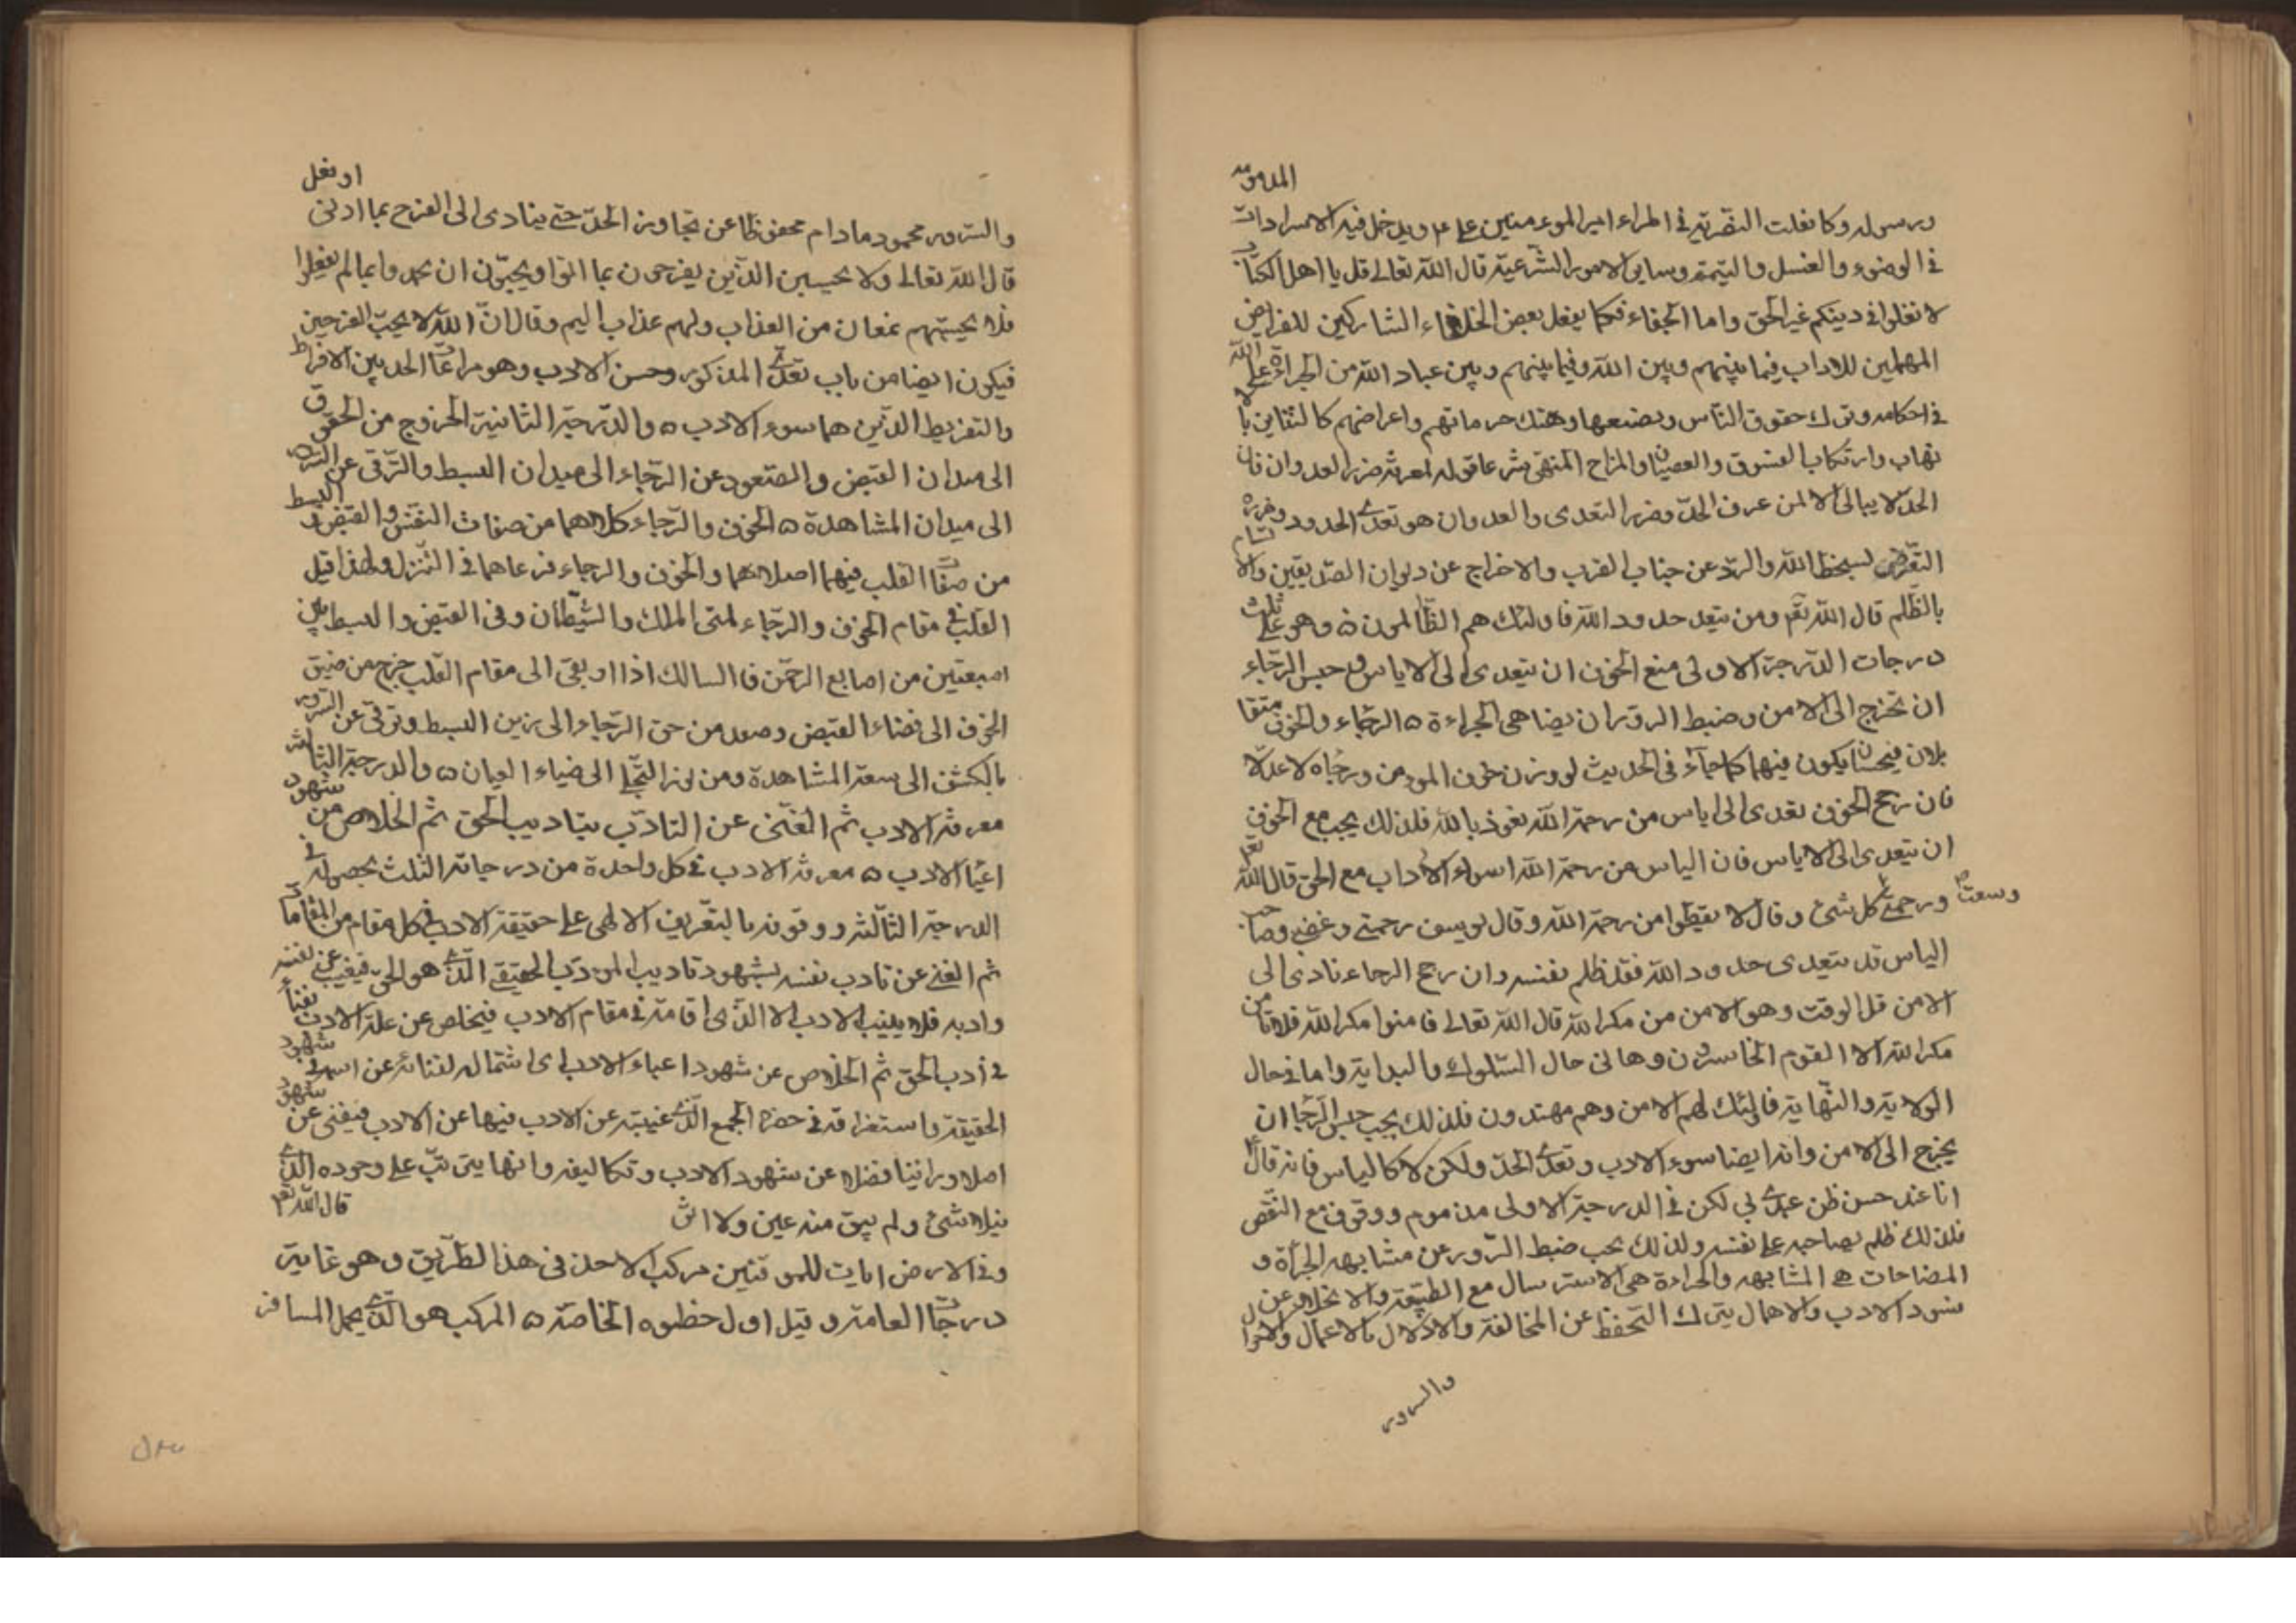 المدموّمة
ورسوله وكما نغلت النصرية في اطراء امير الموءمنين على ع ويدخل فيه الاسرادات
في الوضوء والغسل والتيمّم وساير الامور الشّرعيّة قال الله تعالى قل يا اهل الكتاب
لا تغلوا في دينكم غير الحق واما الجفاء فكما يفعل بعض الخلفاء التاركين للفرايض
المهملين للاداب فيما بينهم وبين الله وفيما بينهم وبين عباد الله من الجراءة على الله
في احكامه وترك حقوق النّاس وبضعها وهتك حرماتهم واعراضهم كالتنابز بالا
لقاب وارتكاب الفسوق والعصيان والمزاح المنهى شرعا قوله لمعرفة ضرر العدوان فان
الحدّ لا يبالى الا لمن عرف الحدّ وضرر التعدى والعدوان هو تعدى الحدود وضرره
التعرّض لسخط الله والردّ عن جناب القرب والاخراج عن ديوان الصدّيقين والاتسام
بالظّلم قال الله تعم ومن يتعد حدود الله فاولئك هم الظّالمون ۵ وهو على ثلث
درجات الدّرجة الاولى منع الخوف ان يتعدى الى الاياس وحبس الرّجاء
ان تخرج الى الامن وضبط السرور ان يضاهى الجراءة ۵ الرّجاء والخوف متقا
بلان فيحسن ان يكون فيهما كما جاء في الحديث لو وزن خوف المومن ورجاه لاعتدلا
فان رجح الخوف تعدى الى اياس من رحمة الله نعوذ بالله فلذلك يجب منع الخوف
ان يتعدى الى الاياس فان الياس من رحمة الله اسواء الاداب مع الحق قال الله تعم
ورحمتى وسعت كل شئ وقال لا تقنطوا من رحمة الله وقال لو يسبق رحمتى وغضبى وصاحب
الياس قد يتعدى حدود الله فقد ظلم نفسه وان رجح الرجاء تادى الى
الامن قبل الوقت وهو الامن من مكر الله قال الله تعالى فامنوا مكر الله فلا يأمن
مكر الله الا القوم الخاسرون وها في حال السّلوك والبداية واما في حال
الولاية والنّهاية فاولئك لهم الامن وهم مهتدون فلذلك يجب حبس الرّجاء ان
يخرج الى الامن وانه ايضا سوء الادب وتعدى الحدّ ولكن لا كالياس فانه قال
انا عند حسن ظن عبدى بي لكن في الدرجة الاولى مذموم ووقوف مع النّقص
فلذلك ظلم بصاحبه على نفسه ولذلك يجب ضبط السّرور عن مشابهه الجرأة و
المضاحات هى المشابهه والجراءة هى الاسترسال مع الطبيعة والانخلاع عن
شود الادب والاهمال بترك التحفظ عن المخالفة والادلال بالاعمال والاحوال
والسرور
او نغل
والسرور محمود مادام محفوظا عن تجاوز الحدّ حتى يتادى الى الفرح بما ادنى
قال الله تعالى ولا تحسبن الذّين يفرحون بما اتوا ويحبّون ان يحمدوا بما لم يفعلوا
فلا تحسبنهم بمفازة من العذاب ولهم عذاب اليم وقال انّ الله لا يحبّ الفرحين
فيكون ايضا من باب تعدى المذكور وحسن الادب وهو مراعات الحد بين الافراط
والتفريط الذّين هما سوء الادب ۵ والدّرجة الثانية الخروج من الخوف
الى ميدان القبض والصّعود عن الرّجاء الى ميدان البسط والتّرقى عن السّرور
الى ميدان المشاهدة ۵ الخوف والرّجاء كلاهما من صفات النّفس والقبض والبسط
من صفات القلب فيهما اصلاهما والخوف والرجاء فرعاهما في التّنزل ولهذا قيل
القلب في مقام الخوف والرّجاء لمتى الملك والشّيطان وفى القبض والبسط بين
اصبعين من اصابع الرحمن فالسالك اذا ارتقى الى مقام القلب خرج من ضيق
الخوف الى فضاء القبض وصعد من حق الرّجاء الى زين البسط وترقى عن السّرور
بالكشف الى سعة المشاهدة ومن نور التجلّى الى ضياء العيان ۵ والدرجة الثالثة
معرفة الادب ثم الغنى عن التادّب بتاديب الحق ثم الخلاص من شهود
اعباء الادب ۵ معرفة الادب في كل واحدة من درجاته الثلث بحصوله في
الدرجة الثالثة ووقوفه بالتعريف الالهى على حقيقة الادب في كل مقام من المقامات
ثم الغنى عن تادب نفسه بشهود تاديب المودّب الحقيقى الذى هو الحق فيغيب عن نفسه
وادبه فلا ينسب الادب الا الذّى اقامه في مقام الادب فيخلص عن علّة الادب بفنائه
في ادب الحق ثم الخلاص عن شهود اعباء الادب اى اشتماله لفنائه عن اسره في شهود
الحقيقة باستغراقه في حضرة الجمع الذى غيبته عن الادب فيها عن الادب فيفنى عن شهود
اصلا وراثيا فضلا عن شهود الادب وتكاليفه وانها يترتّب على وجوده الذّى
فيلاشئ ولم يبق منه عين ولا اثر قال الله تعم
وفى الارض ايات للموقنين مركب الاحد فى هذا الطّريق وهو غاية
درجات العامة وقيل اول خطوه الخاصّة ۵ المركب هو الذى يحمل المسافر